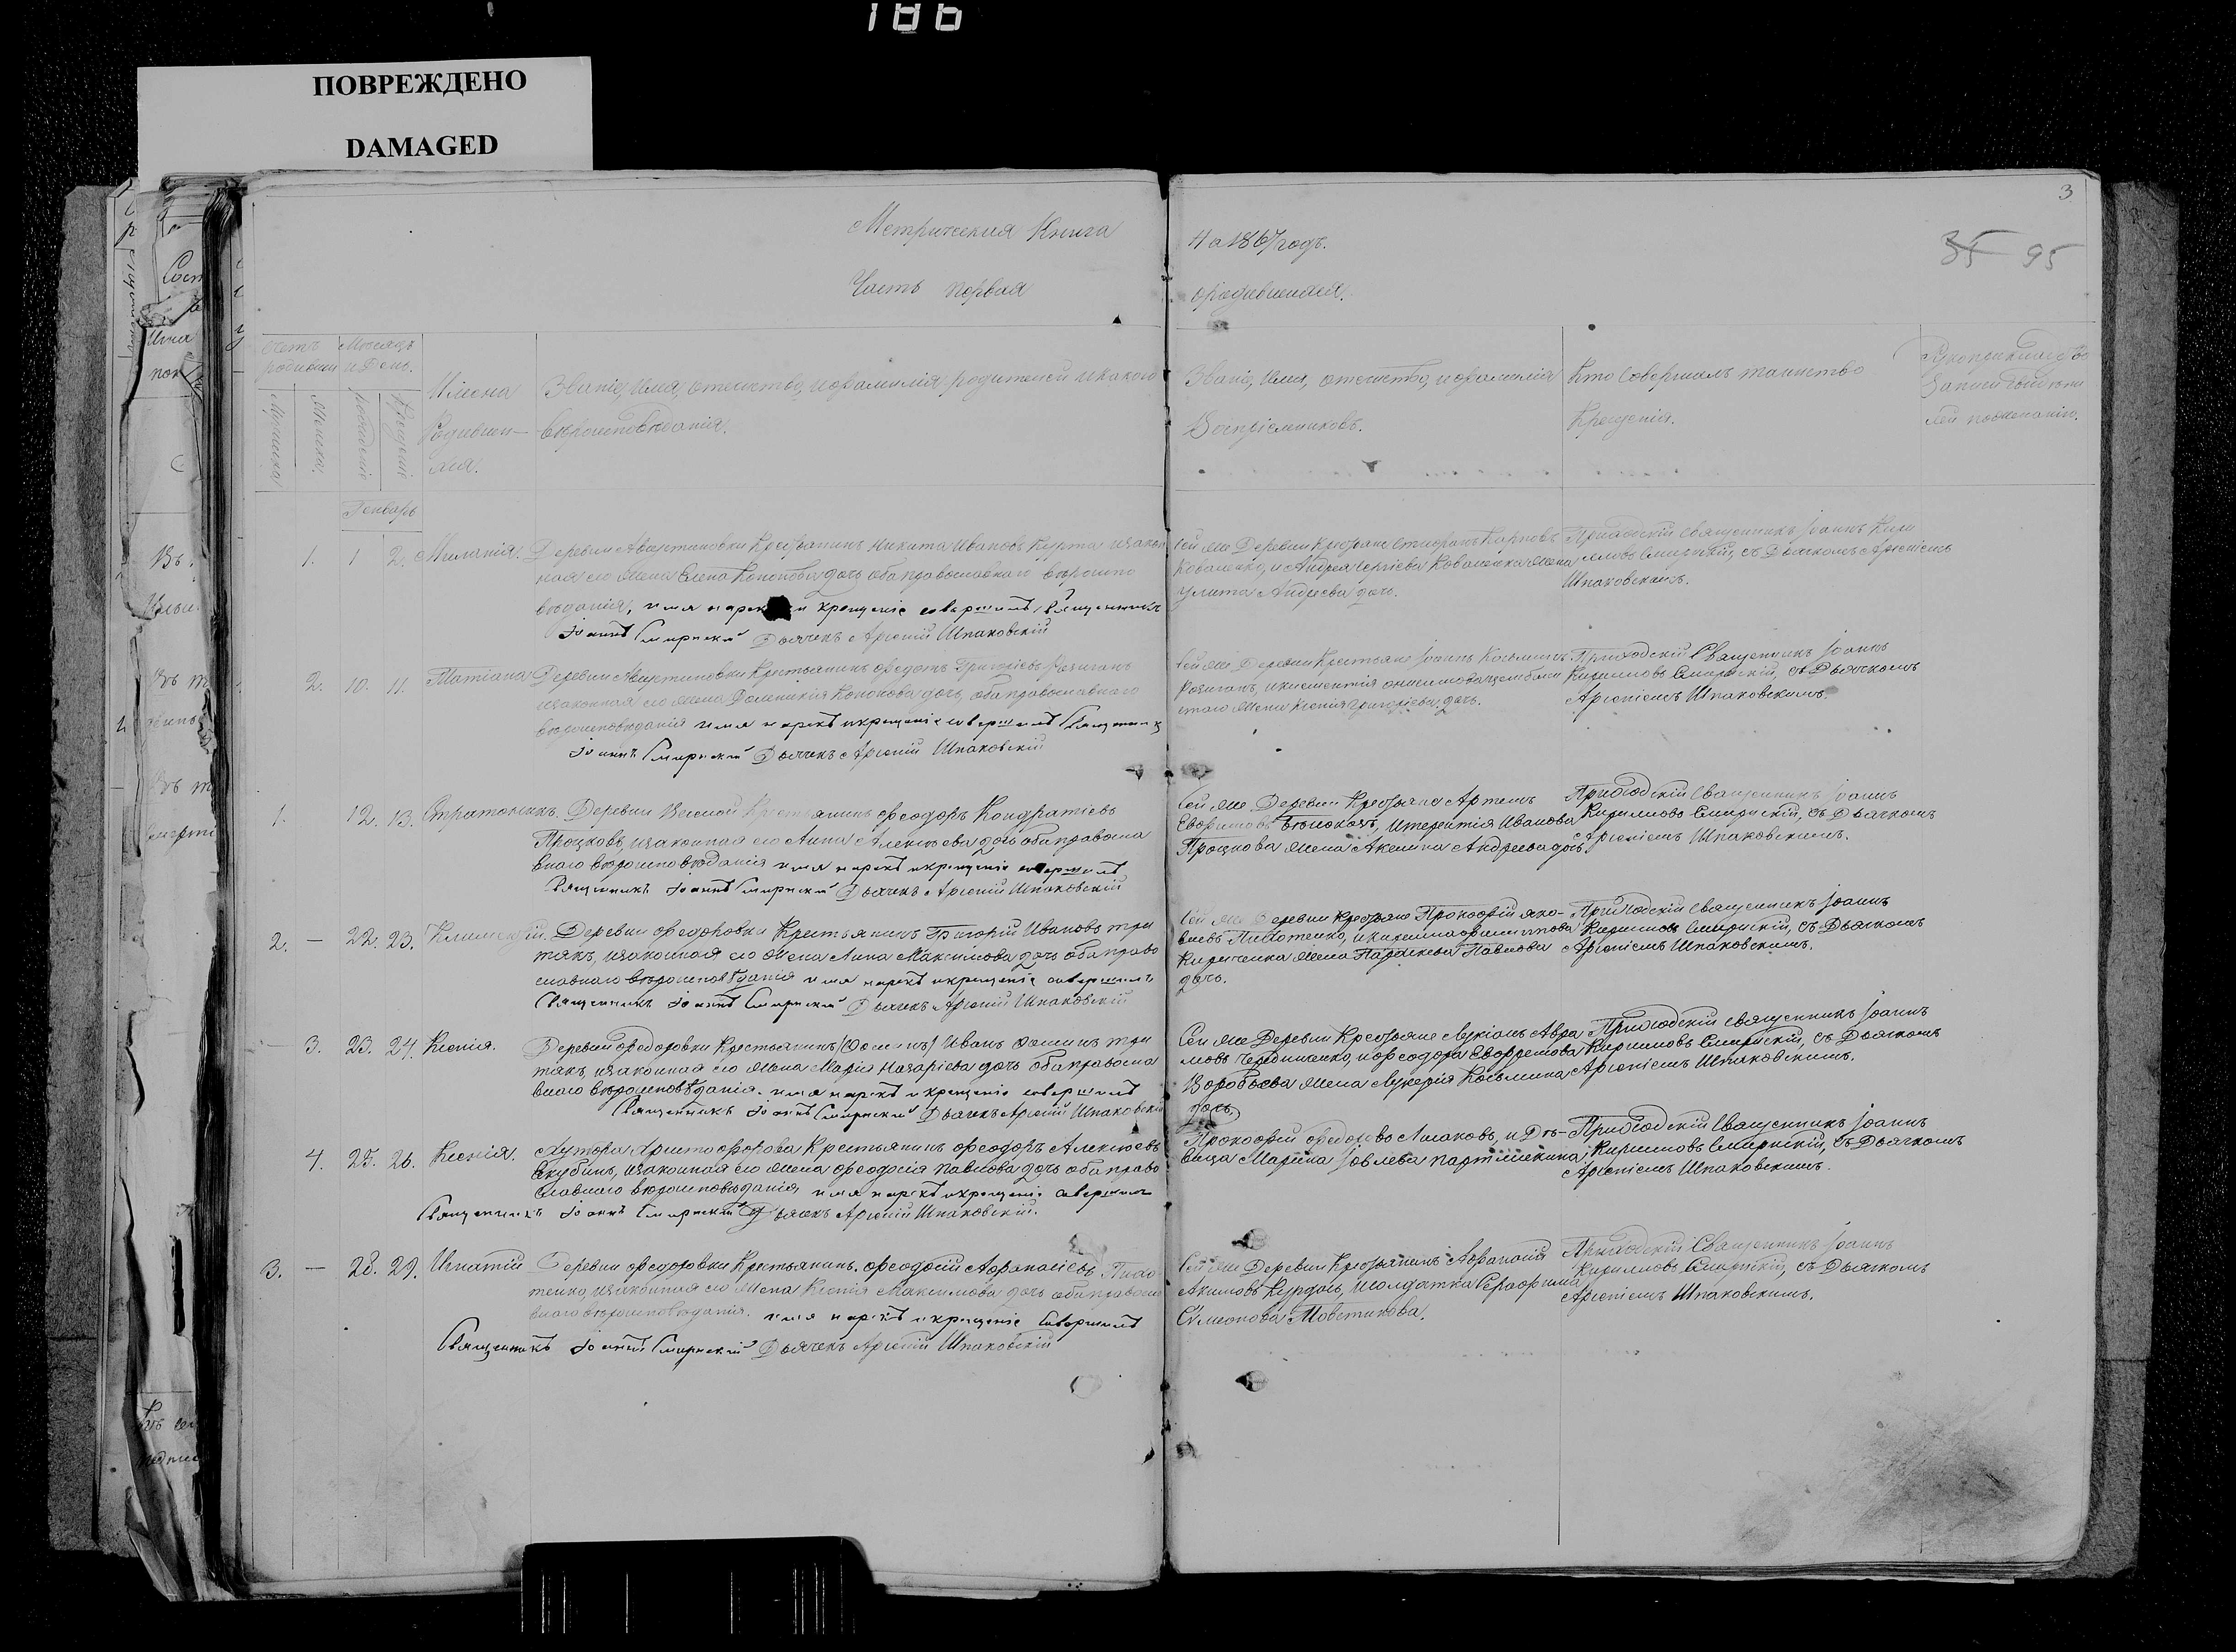 186
ПОВРЕЖДЕНО
DAMAGED
3
Метрическая Книга
На 1867 годъ.
35 95
Часть первая
о родившихся.
Счетъ родивших
Мѣсяцъ и День.
Мужеска
Женска
рожденія
Крещенія
Имена Родивших-
ся.
Званіе, имя, отечество, и фамилія родителей и какого
вѣроисповѣданія.
Званіе, имя, отечество, и фамилія
Воспріемниковъ.
Кто совершалъ таинство
Крещенія.
Рукоприкладство
Записи свидѣте
лей по желанію.
Генварь
1. 1 2. Миланія. Деревни Мартиновки Крестьянинъ Никита Ивановъ Курта и закон
ная его жена Елена Кононова дочь оба православнаго вѣроиспо
вѣданія, имя нарек и крещеніе совершилъ Священникъ
Іоаннъ Смирнскій Дьячекъ Арсеній Шпаковскій
Сей же Деревни Крестьяне Стефанъ Карповъ
Коваленко, и Андрея Сергіева Коваленка жена
Улита Андреева дочь.
Приходскій Священникъ Іоаннъ Кири
лловъ Смирнскій, съ Дьячкомъ Арсеніемъ
Шпаковскимъ.
2. 10. 11. Татіана Деревни Мартиновки Крестьянинъ Федотъ Григорієвъ
и законная его жена Домникія Кононова дочь, оба православнаго
вѣроисповѣданія имя нарекъ и крещеніе совершилъ Священникъ
Іоаннъ Смирнскій Дьячекъ Арсеній Шпаковскій
Сей же Деревни Крестьяне Іоаннъ Косьминъ
жена Ксенія Григоріева дочь.
Приходскій Священникъ Іоаннъ
Кирилловъ Смирнскій, съ Дьячкомъ
Арсеніемъ Шпаковскимъ.
1. 12. 13. Стратоникъ. Деревни Крестьянинъ Феодоръ Кондратіевъ
Процковъ, и законная его Анна Алексѣева дочь оба правосла
внаго вѣроисповѣданія имя нарекъ и крещеніе совершилъ
Священникъ Іоаннъ Смирнскій Дьячекъ Арсеній Шпаковскій
Сей же Деревни Крестьяне Артемъ
Евфимовъ Бѣлоконь, и терентія Иванова
Процкова жена Акелина Андреева дочь.
Приходскій Священникъ Іоаннъ
Кирилловъ Смирнскій, съ Дьячкомъ
Арсеніемъ Шпаковскимъ.
2. — 22. 23. Климентій. Деревни Федоровки Крестьянинъ Григорій Ивановъ три
тякъ, и законная его жена Анна Максимова дочь оба право
славнаго вѣроисповѣданія имя нарекъ и крещеніе совершилъ
Священникъ Іоаннъ Смирнскій Дьячекъ Арсеній Шпаковскій
Сей же Деревни Крестьяне Прокофій яко-
влевъ Пихотенко, и кирилла филиппова
Кириченка жена Параскева Павлова
дочь.
Приходскій Священникъ Іоаннъ
Кирилловъ Смирнскій, съ Дьячкомъ
Арсеніемъ Шпаковскимъ.
— 3. 23. 24. Ксенія. Деревни Федоровки Крестьянинъ (Фоминъ) Иванъ Фоминъ три
тякъ, и законная его жена Марія Назаріева дочь оба правосла
внаго вѣроисповѣданія. имя нарекъ и крещеніе совершилъ
Священникъ Іоаннъ Смирнскій Дьячекъ Арсеній Шпаковскій
Сей же Деревни Крестьяне Лукіанъ Авра
мовъ Чередниченко, и феодора Евфремова
Воробьева жена Лукерія Косьмина
дочь.
Приходскій Священникъ Іоаннъ
Кирилловъ Смирнскій, съ Дьячкомъ
Арсеніемъ Шпаковскимъ.
4. 25. 26. Ксенія. Хутора Христофорова Крестьянинъ Феодоръ Алексѣевъ
Якубинъ, и законная его жена Феодосія Павлова дочь оба право
славнаго вѣроисповѣданія имя нарекъ и крещеніе совершилъ
Священникъ Іоаннъ Смирнскій Дьячекъ Арсеній Шпаковскій.
Прокофій Федоровъ Лисаковъ, и Дѣ-
вица Марина Іовлева
Приходскій Священникъ Іоаннъ
Кирилловъ Смирнскій, съ Дьячкомъ
Арсеніемъ Шпаковскимъ.
3. — 28. 29. Игнатій Деревни Федоровки Крестьянинъ. Феодосій Афанасіевъ Пихо
тенко, и законная его жена Ксенія Максимова дочь оба правосла
внаго вѣроисповѣданія. имя нарекъ и крещеніе Совершилъ
Священникъ Іоаннъ Смирнскій Дьячекъ Арсеній Шпаковскій
Сей же Деревни Крестьянинъ Афанасій
Акимовъ Курдасъ, и солдатка Серафима
Сѵмеонова Товстикова.
Приходскій Священникъ Іоаннъ
Кирилловъ Смирнскій, съ Дьячкомъ
Арсеніемъ Шпаковскимъ.